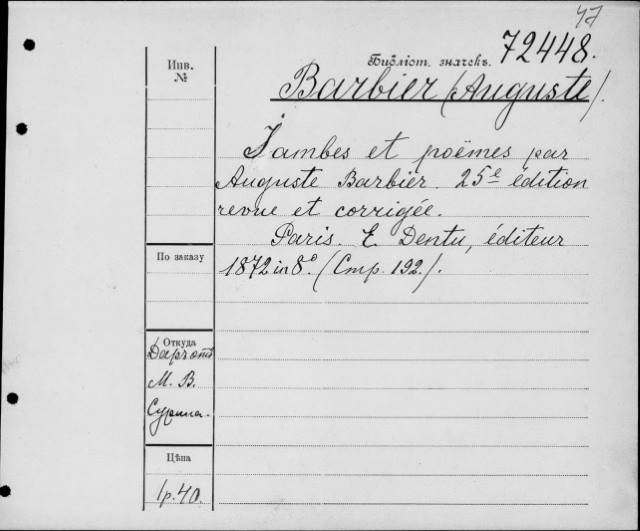 47
Библіот. значекъ. 72448.
Инв.
№
Barbier (Auguste).
Jambes et poëmes par
Auguste Barbier. 25e édition
revue et corrigée.
Paris. E. Dentu, éditeur
1872 in 8°. (Стр. 192.).
По заказу
Откуда
М. В.
Цѣна
1р. 40.